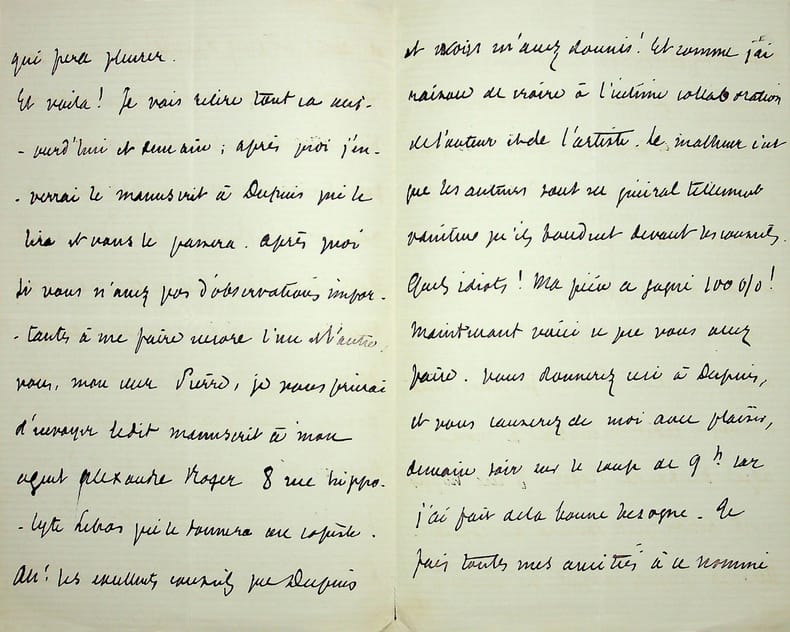 qui fera pleurer.
Et voila! Je vais relire tout ca auj-
-ourd'hui et demain ; après quoi j'en-
-verrai le manuscrit à Dupuis qui le
lira et vous le passera. Après quoi
si vous n'avez pas d'observations impor-
-tantes à me faire encore l'un et l'autre,
vous, mon cher Pierre, je vous prierai
d'envoyer ledit manuscrit à mon
agent Alexandre Roger 8 rue hippo-
-lyte Lebas qui le donnera au copiste.
Ah! les excellents conseils que Dupuis
et vous m'avez donnés! Et comme j'ai
raison de croire à l'intime collaboration
de l'auteur et de l'artiste. Le malheur c'est
que les auteurs sont en général tellement
vaniteux qu'ils boudent devant les conseils.
Quels idiots! Ma pièce a gagné 100 0/0!
Maintenant voici ce que vous allez
faire. Vous donnerez ceci à Dupuis,
et vous causerez de moi avec plaisir,
demain soir sur le coup de 9h car
j'ai fait de la bonne besogne. Je
fais toutes mes amitiés à ce nommé